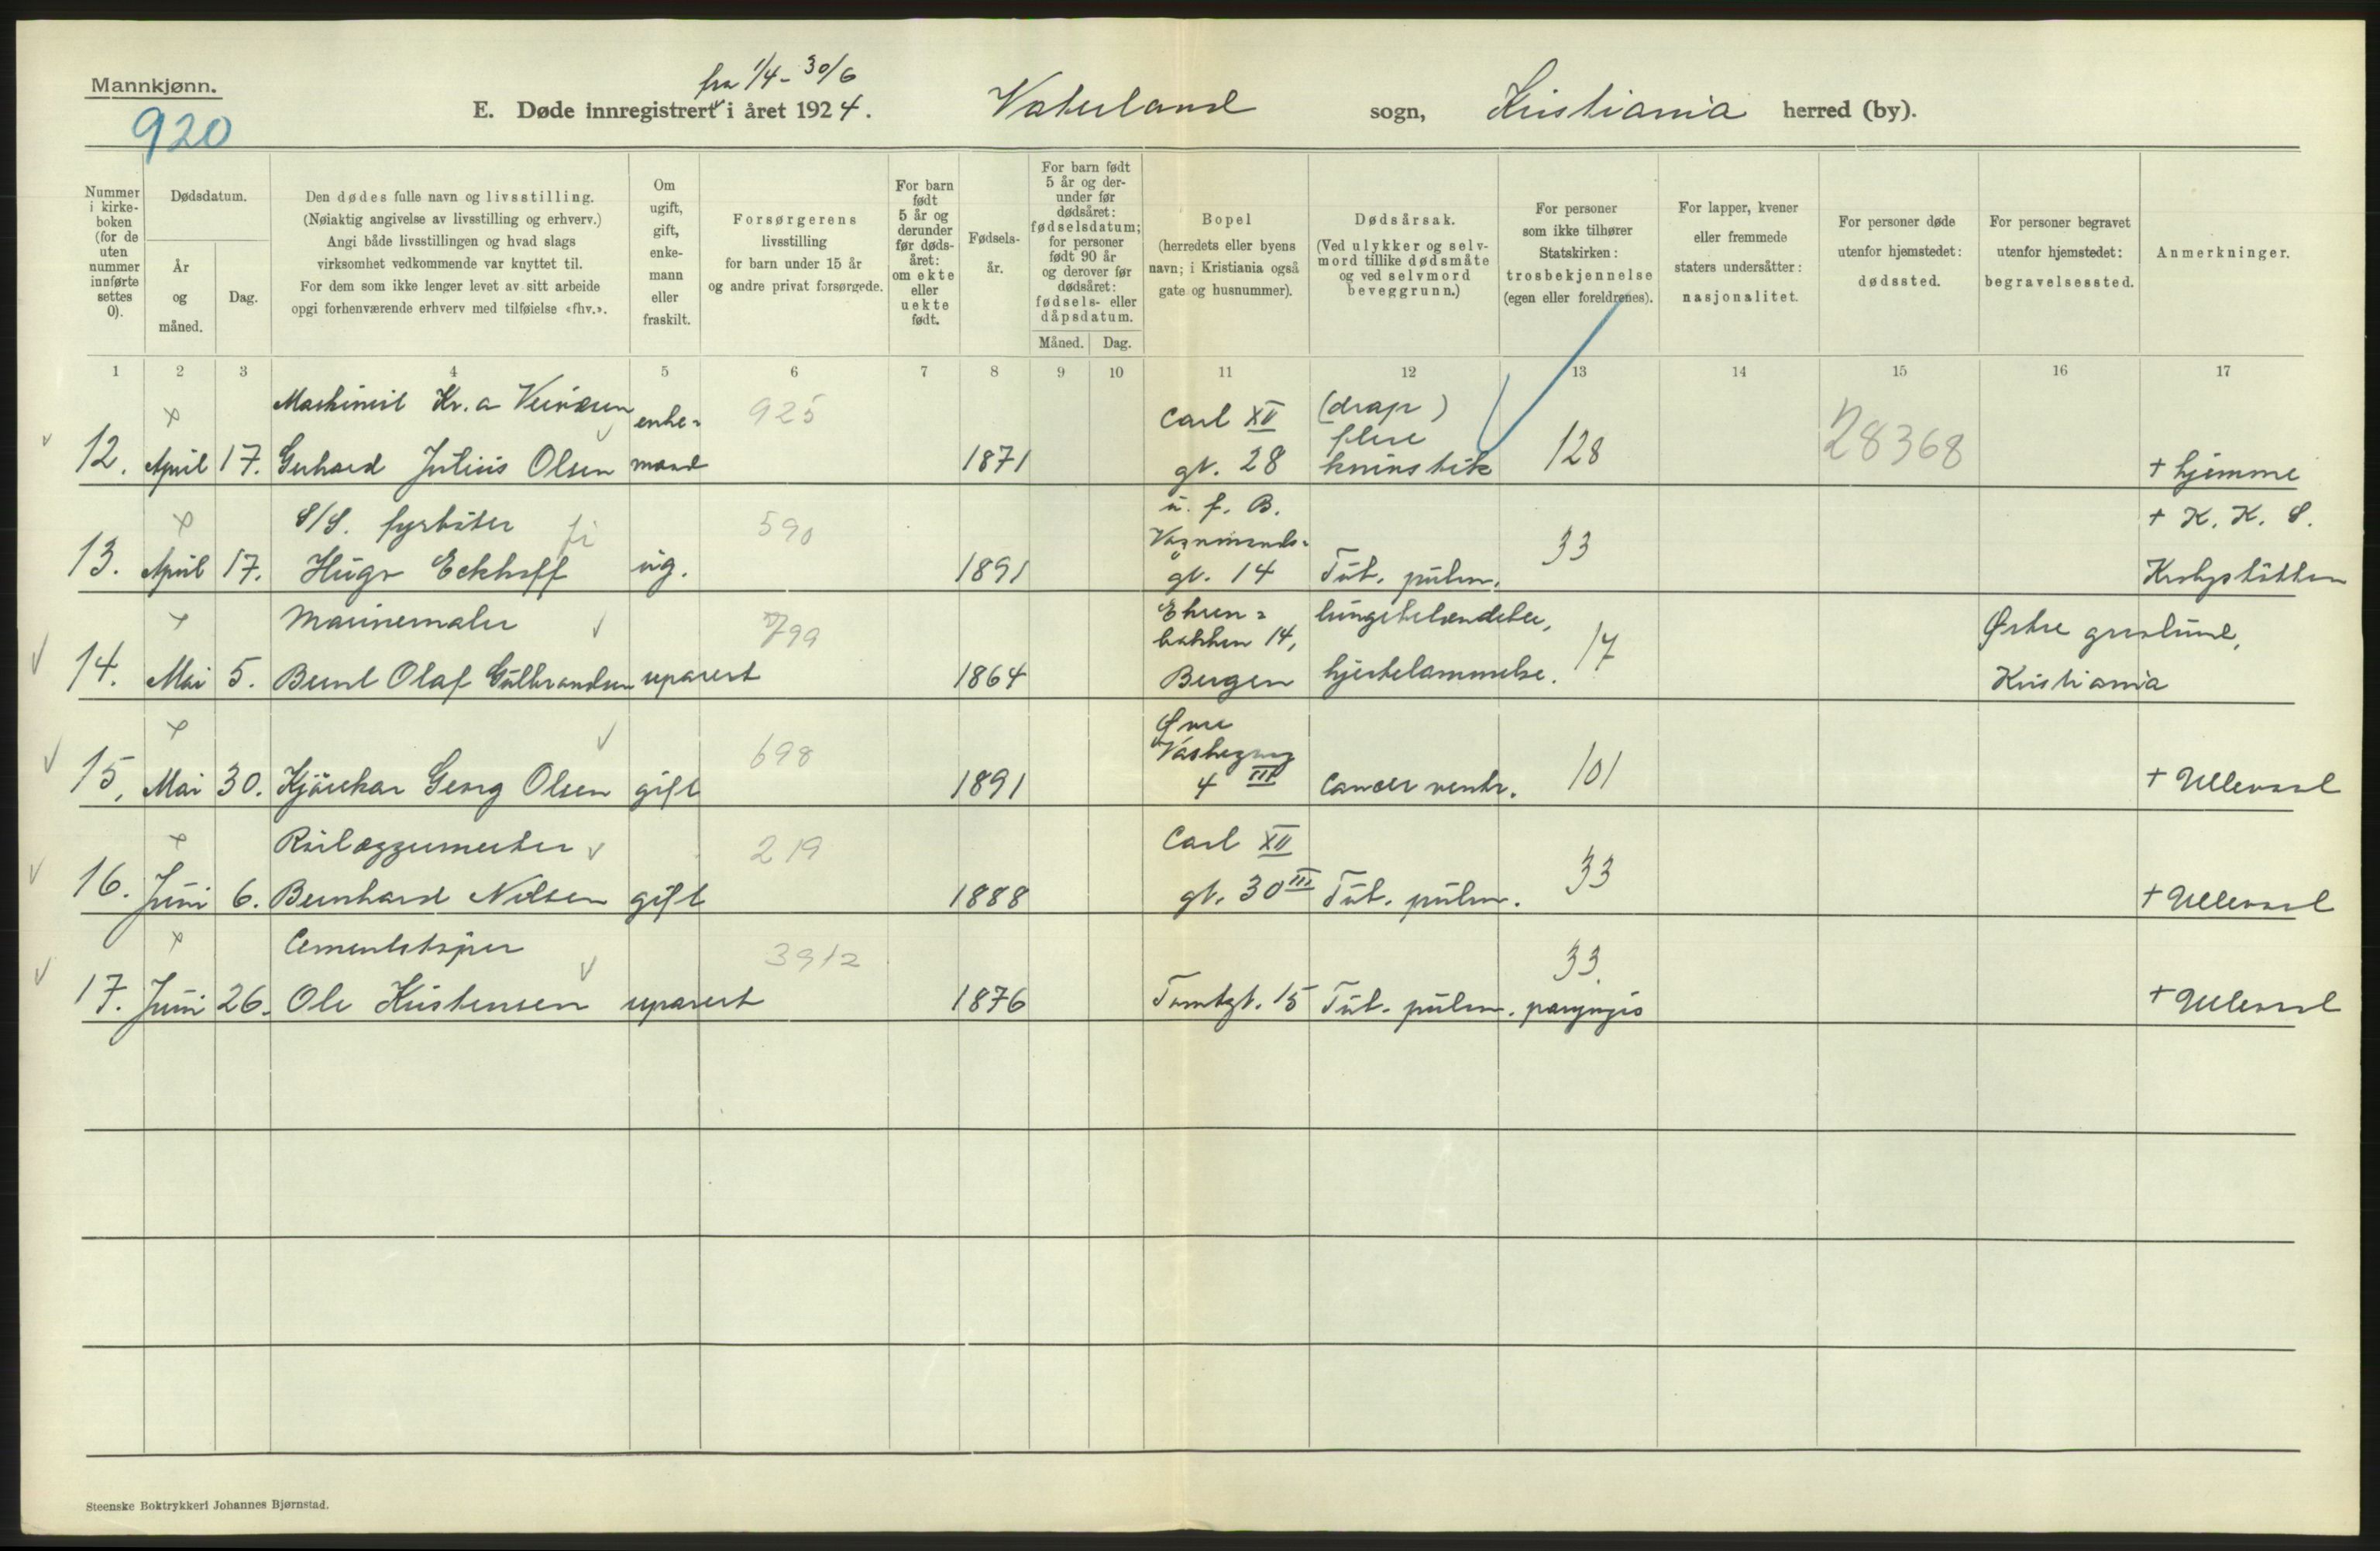 Mannkjønn.
920
fra 1/4 - 30/6
E. Døde innregistrert i året 1924. Vaterland sogn, Kristiania herred (by).
Nummer i kirke-boken (for de uten nummer innførte settes 0).
Dødsdatum.
År og måned.
Dag.
Den dødes fulle navn og livsstilling.
(Nøiaktig angivelse av livsstilling og erhverv.)
Angi både livsstillingen og hvad slags
virksomhet vedkommende var knyttet til.
For dem som ikke lenger levet av sitt arbeide
opgi forhenværende erhverv med tilføielse «fhv.».
Om ugift, gift, enke-mann eller fraskilt.
Forsørgerens
livsstilling
for barn under 15 år
og andre privat forsørgede.
For barn født 5 år og derunder før døds-året: om ekte eller uekte født.
Fødsels-år.
For barn født 5 år og der-under før dødsåret: fødselsdatum; for personer født 90 år og derover før dødsåret: fødsels- eller dåpsdatum.
Måned. Dag.
Bopel
(herredets eller byens
navn; i Kristiania også
gate og husnummer).
Dødsårsak.
(Ved ulykker og selv-
mord tillike dødsmåte
og ved selvmord
beveggrunn.)
For personer
som ikke tilhører
Statskirken:
trosbekjennelse
(egen eller foreldrenes).
For lapper, kvener
eller fremmede
staters undersåtter:
nasjonalitet.
For personer døde
utenfor hjemstedet:
dødssted.
For personer begravet
utenfor hjemstedet:
begravelsessted.
Anmerkninger.
1 2 3 4 5 6 7 8 9 10 11 12 13 14 15 16 17
Maskinist Kr.a enke= 925 Carl XII (drap) flere
12. April 17. Gerhard Julius Olsen mand 1871 gt. 28 knivstik 128 28368 + hjemme
S/S. fyrbøter fi 590 u. f. B. + K. K. S.
Vognmands=
13. April 17. Hugo Eckhoff ug. 1891 gt. 14 Tub. pulm. 33 Krohgstøtten
Marinemaler 799 Ehren= lungebetændelse, Østre gravlund,
bakken 14,
14. Mai 5. Bernt Olaf Gulbrandsen separert 1864 Bergen hjertelammelse. 17 Kristiania
698 Øvre
15. Mai 30. Kjørekar Georg Olsen gift 1891 4 III Cancer ventr. 101 + Ullevaal
Rørlæggermester 219 Carl XII
16. Juni 6. Bernhard Nilsen gift 1888 gt. 30 III Tub. pulm. 33 + Ullevaal
Cementstøper 3912 33
17. Juni 26. Ole Kristensen separert 1876 Tomtegt. 15 Tub. pulm. + Ullevaal
Steenske Boktrykkeri Johannes Bjørnstad.